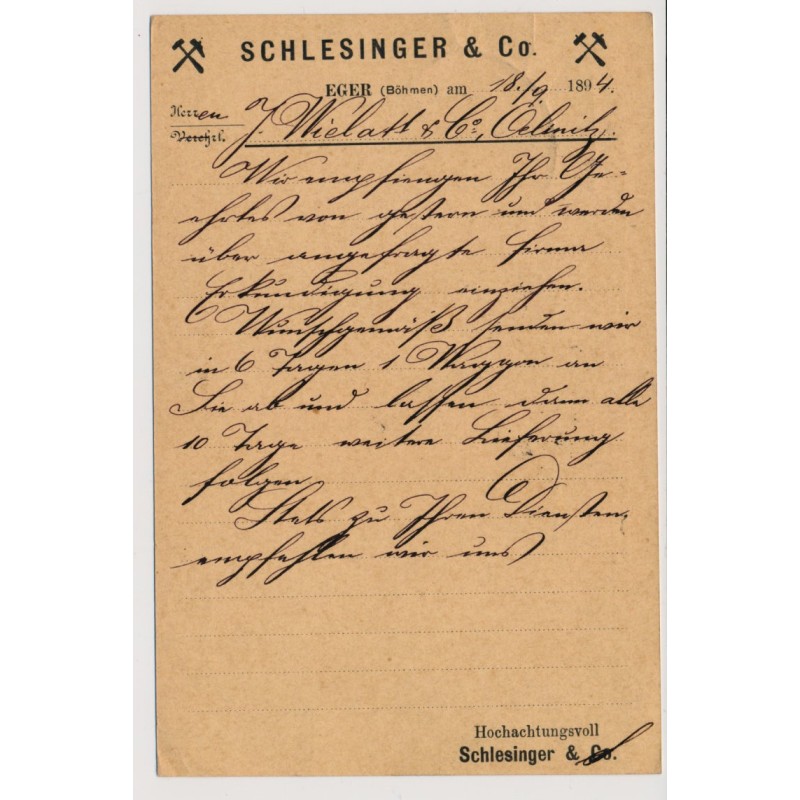 SCHLESINGER & Co.
EGER (Böhmen) am 18./9. 1894.
Herren
Verehrl.
J. Wielatt & Co., Oelsnitz.
Wir empfiengen Ihr Ge-
ehrtes von gestern und werden
über angefragte Firma
Erkundigung einziehen.
Wunschgemäß senden wir
in 6 Tagen 1 Waggon an
Sie ab und lassen dann alle
10 Tage weitere Lieferung
folgen
Stets zu Ihren Diensten
empfehlen wir uns
Hochachtungsvoll
Schlesinger & Co.